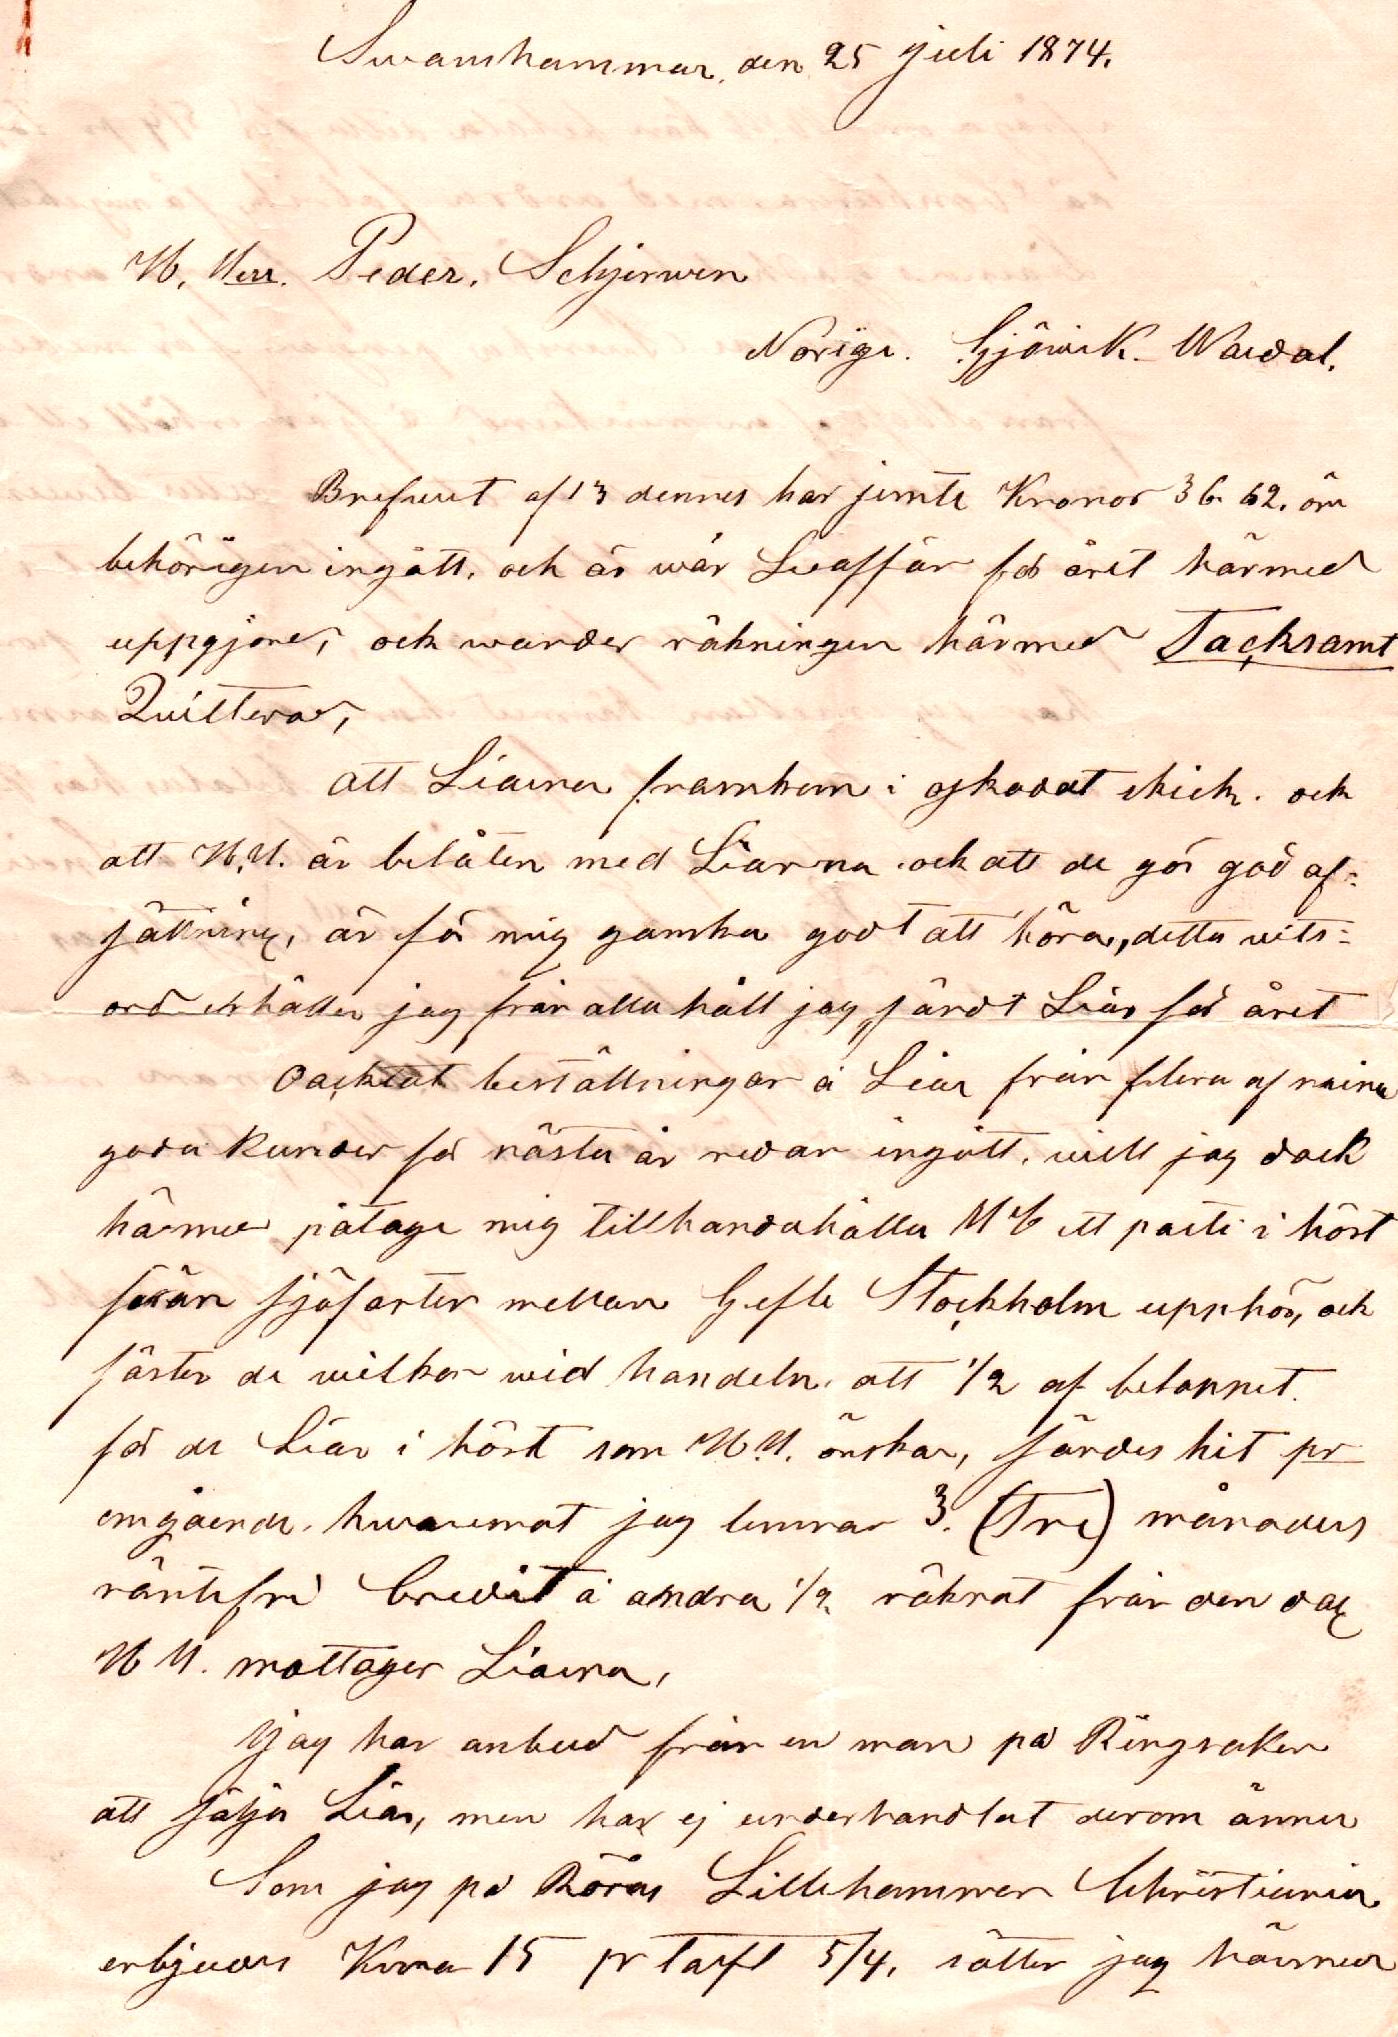 Swanshammar, den 25 Juli 1874.
H. Herr. Peder. Schjerwen
Norige. Gjöwik. Wardal.
Brefwet af 13 dennes har jemte Kronor 36. 62. öre
behörigen ingått. och är wår Lieaffär för året härmed
uppgjord, och warder räkningen härmed Tacksamt
Quitterad,
att Liarna framkom i oskadat skick. och
att H.H. är belåten med Liarna. och att de gör god af=
sättning, är för mig ganska godt att höra, detta wits=
ord erhåller jag från alla håll jag sändt Liar för året
Oacktat beställningar å Liar från flera af mina
goda kunder för nästa år redan ingått. will jag dock
härmed påtaga mig tillhandahålla HH ett parti i höst
förän sjöfarten mellan Gefle Stockholm upphör, och
fäster de wilkor wid handeln. att 1/2 af beloppet.
för de Liar i höst som H.H. önskar, sändes hit pr
omgående. hwaremot jag lemnar 3. (Tre) månaders
räntefri Credit å andra 1/2 räknat från den dag
H H. mottager Liarna,
Jag har anbud från en man på Ringsaker
att sälja Liar, men har ej underhandlat derom ännu
Som jag på Röros Lillehammer Christiania
erbjudes Krona 15 pr Tolft 5/4, sätter jag härmed